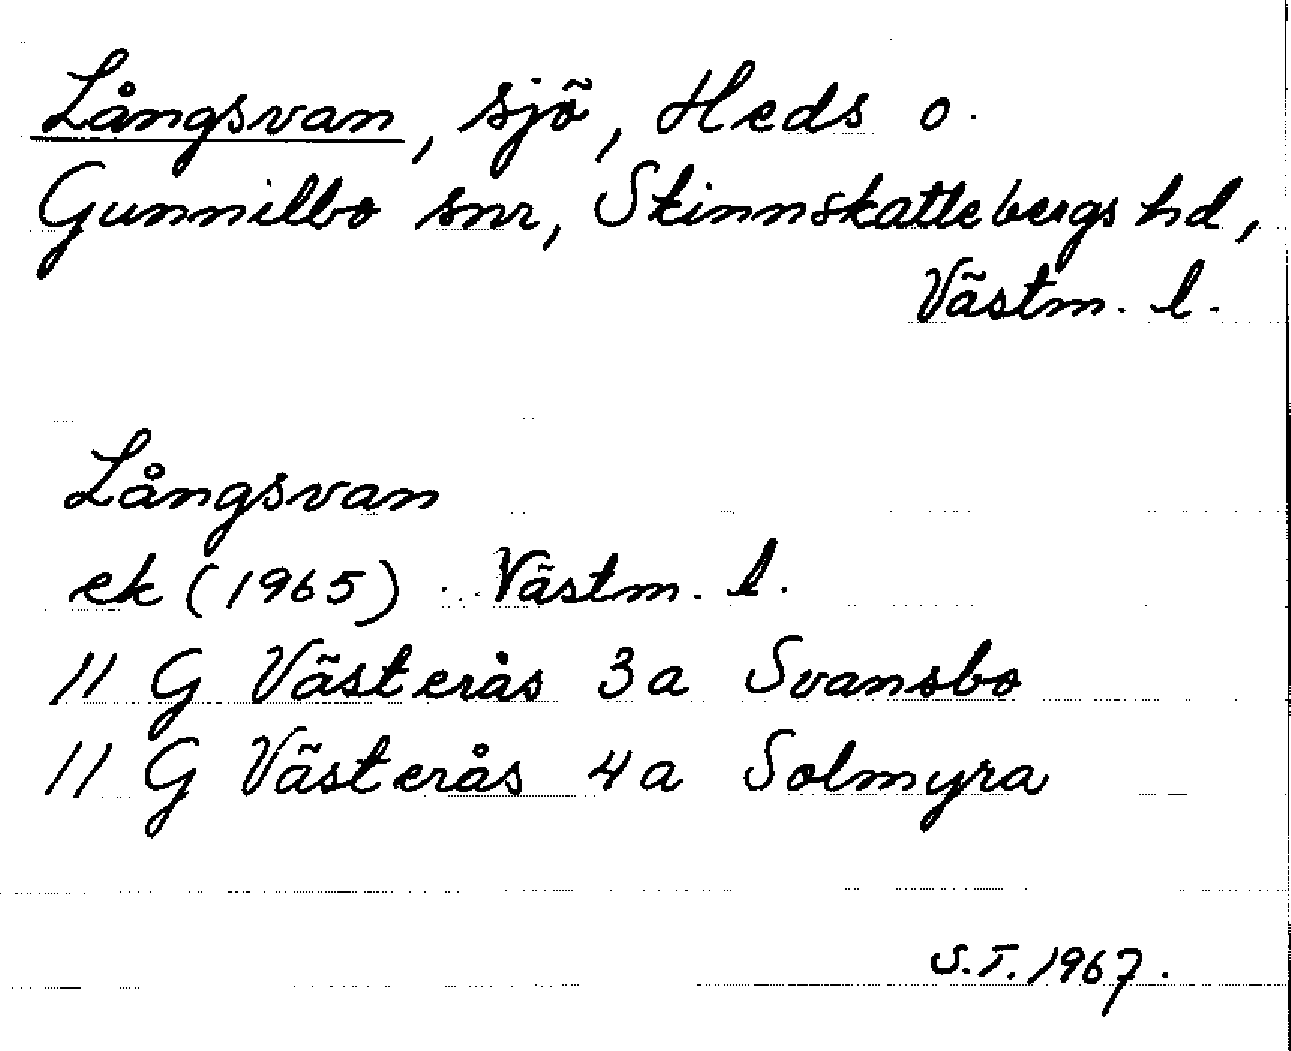 Långsvan, sjö, Heds o.
Gunnilbo snr, Skinnskattebergs hd,
Västm. l.
Långsvan
ek (1965) Västm. l.
11 G Västerås 3a Svansbo
11 G Västerås 4a Solmyra
S.T. 1967.